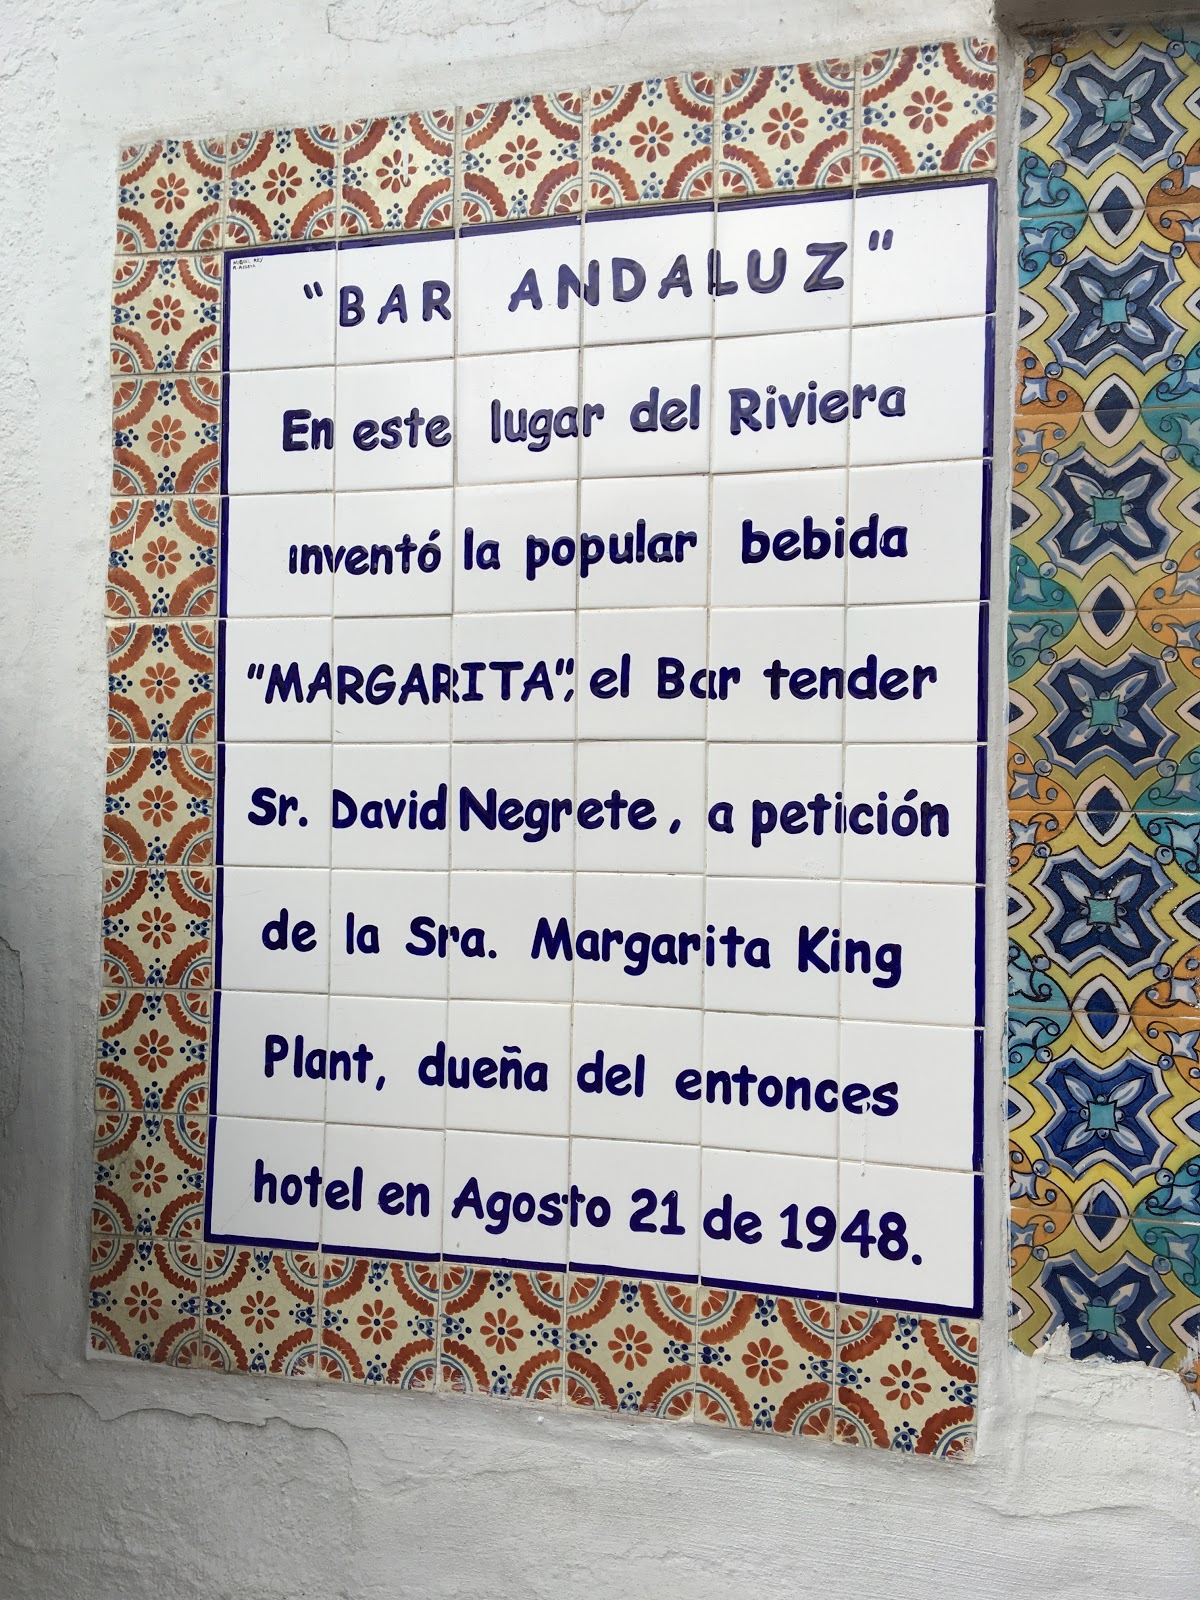 "BAR ANDALUZ"
En este lugar del Riviera
inventó la popular bebida
"MARGARITA", el Bar tender
Sr. David Negrete, a petición
de la Sra. Margarita King
Plant, dueña del entonces
hotel en Agosto 21 de 1948.